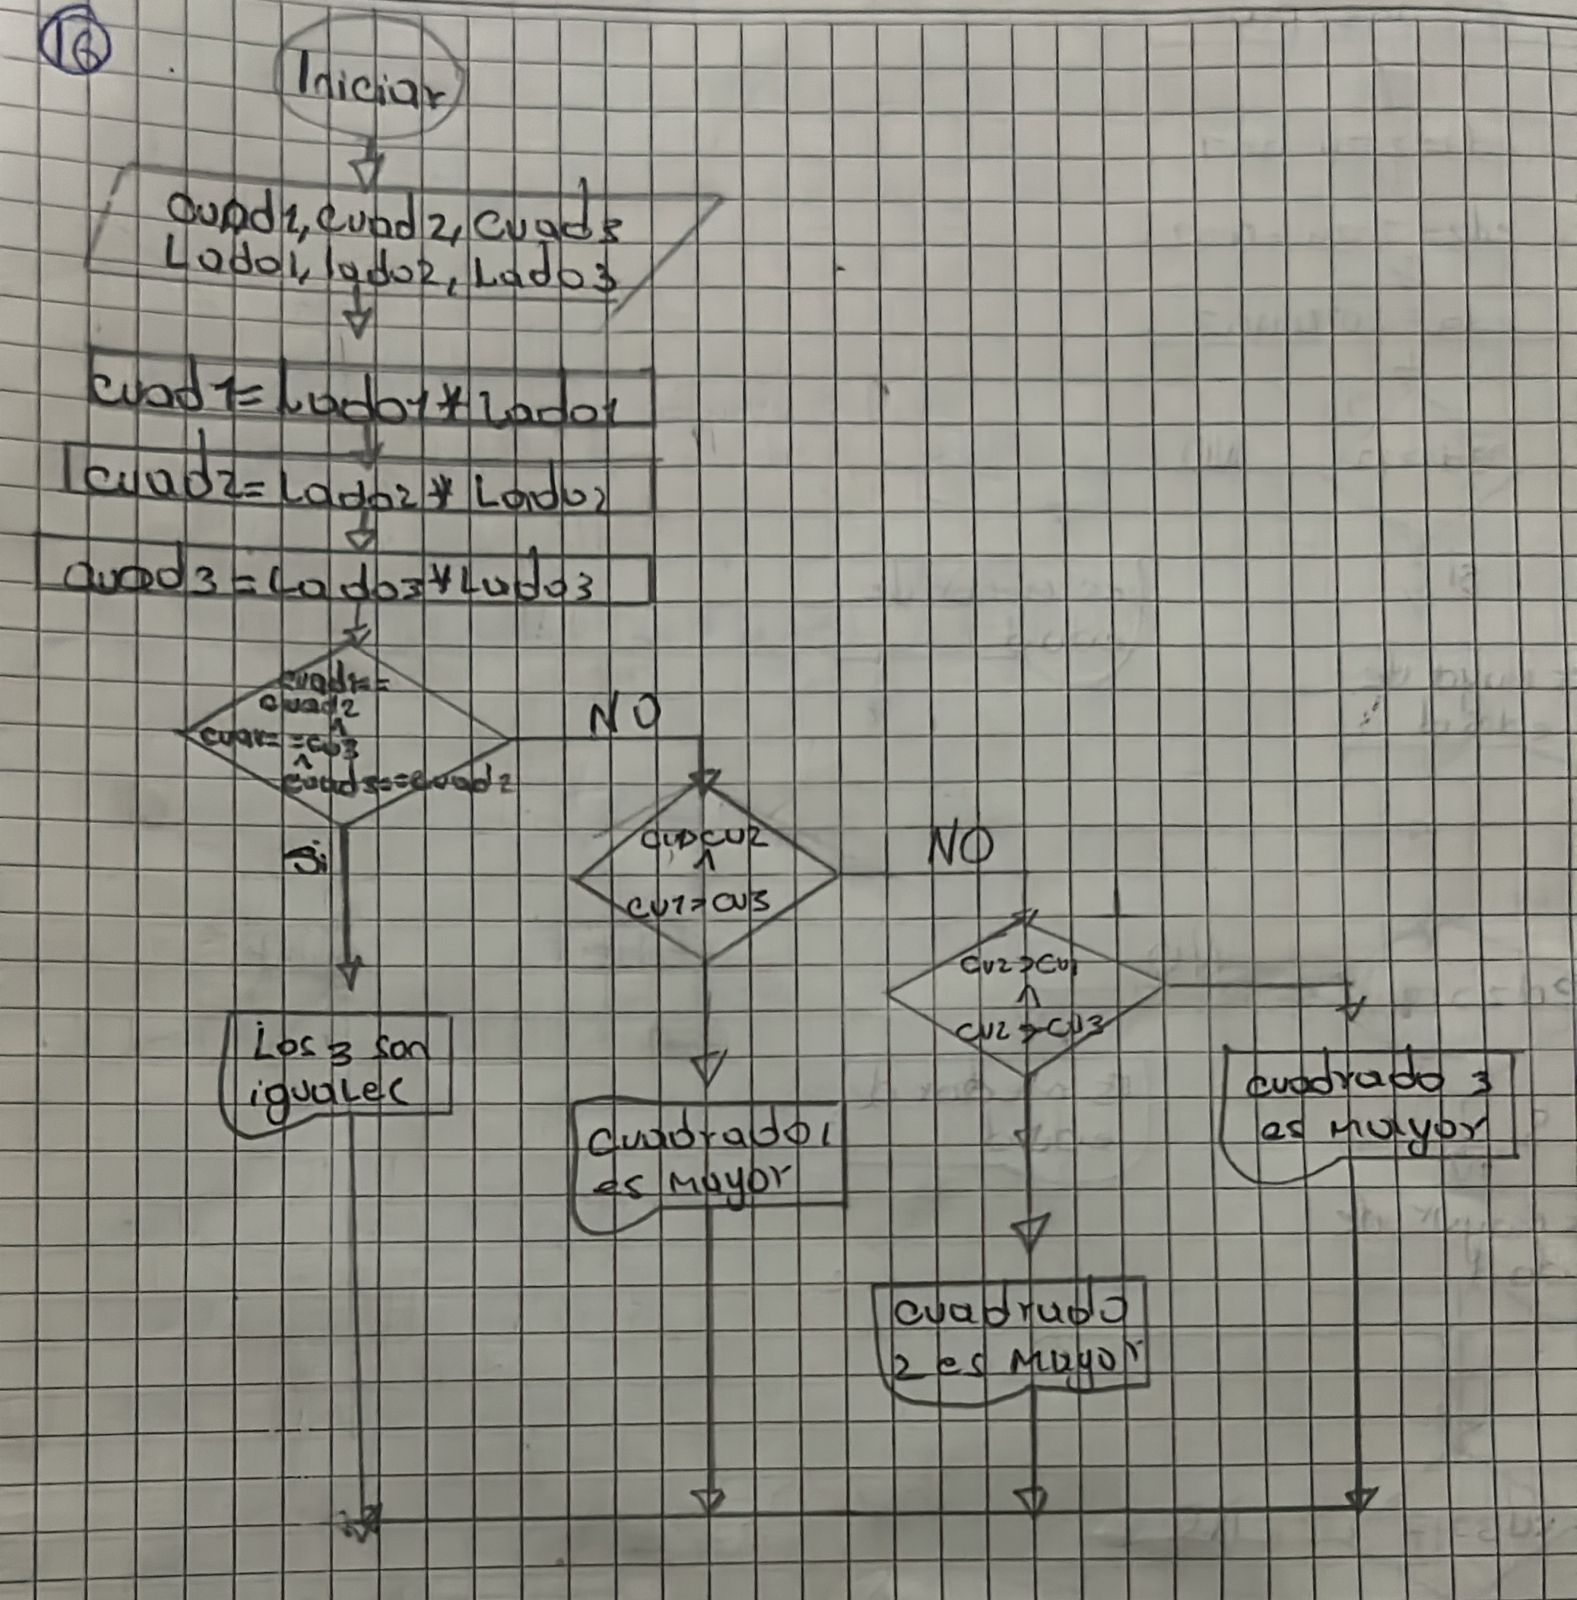 16
Iniciar
cuad1, cuad2, cuad3
Lado1, lado2, Lado3
cuad1=Lado1*Lado1
cuad2=Lado2*Lado2
cuad3=Lado3*Lado3
cuad1==
cuad2
^
==cu3
^
cuad3==cuad2
NO
Si
cu2
^
cu1>cu3
NO
cu2>cu1
^
cu2>cu3
Los 3 son
iguales
cuadrado1
es Mayor
cuadrado 3
es Mayor
cuadrado
2 es Mayor